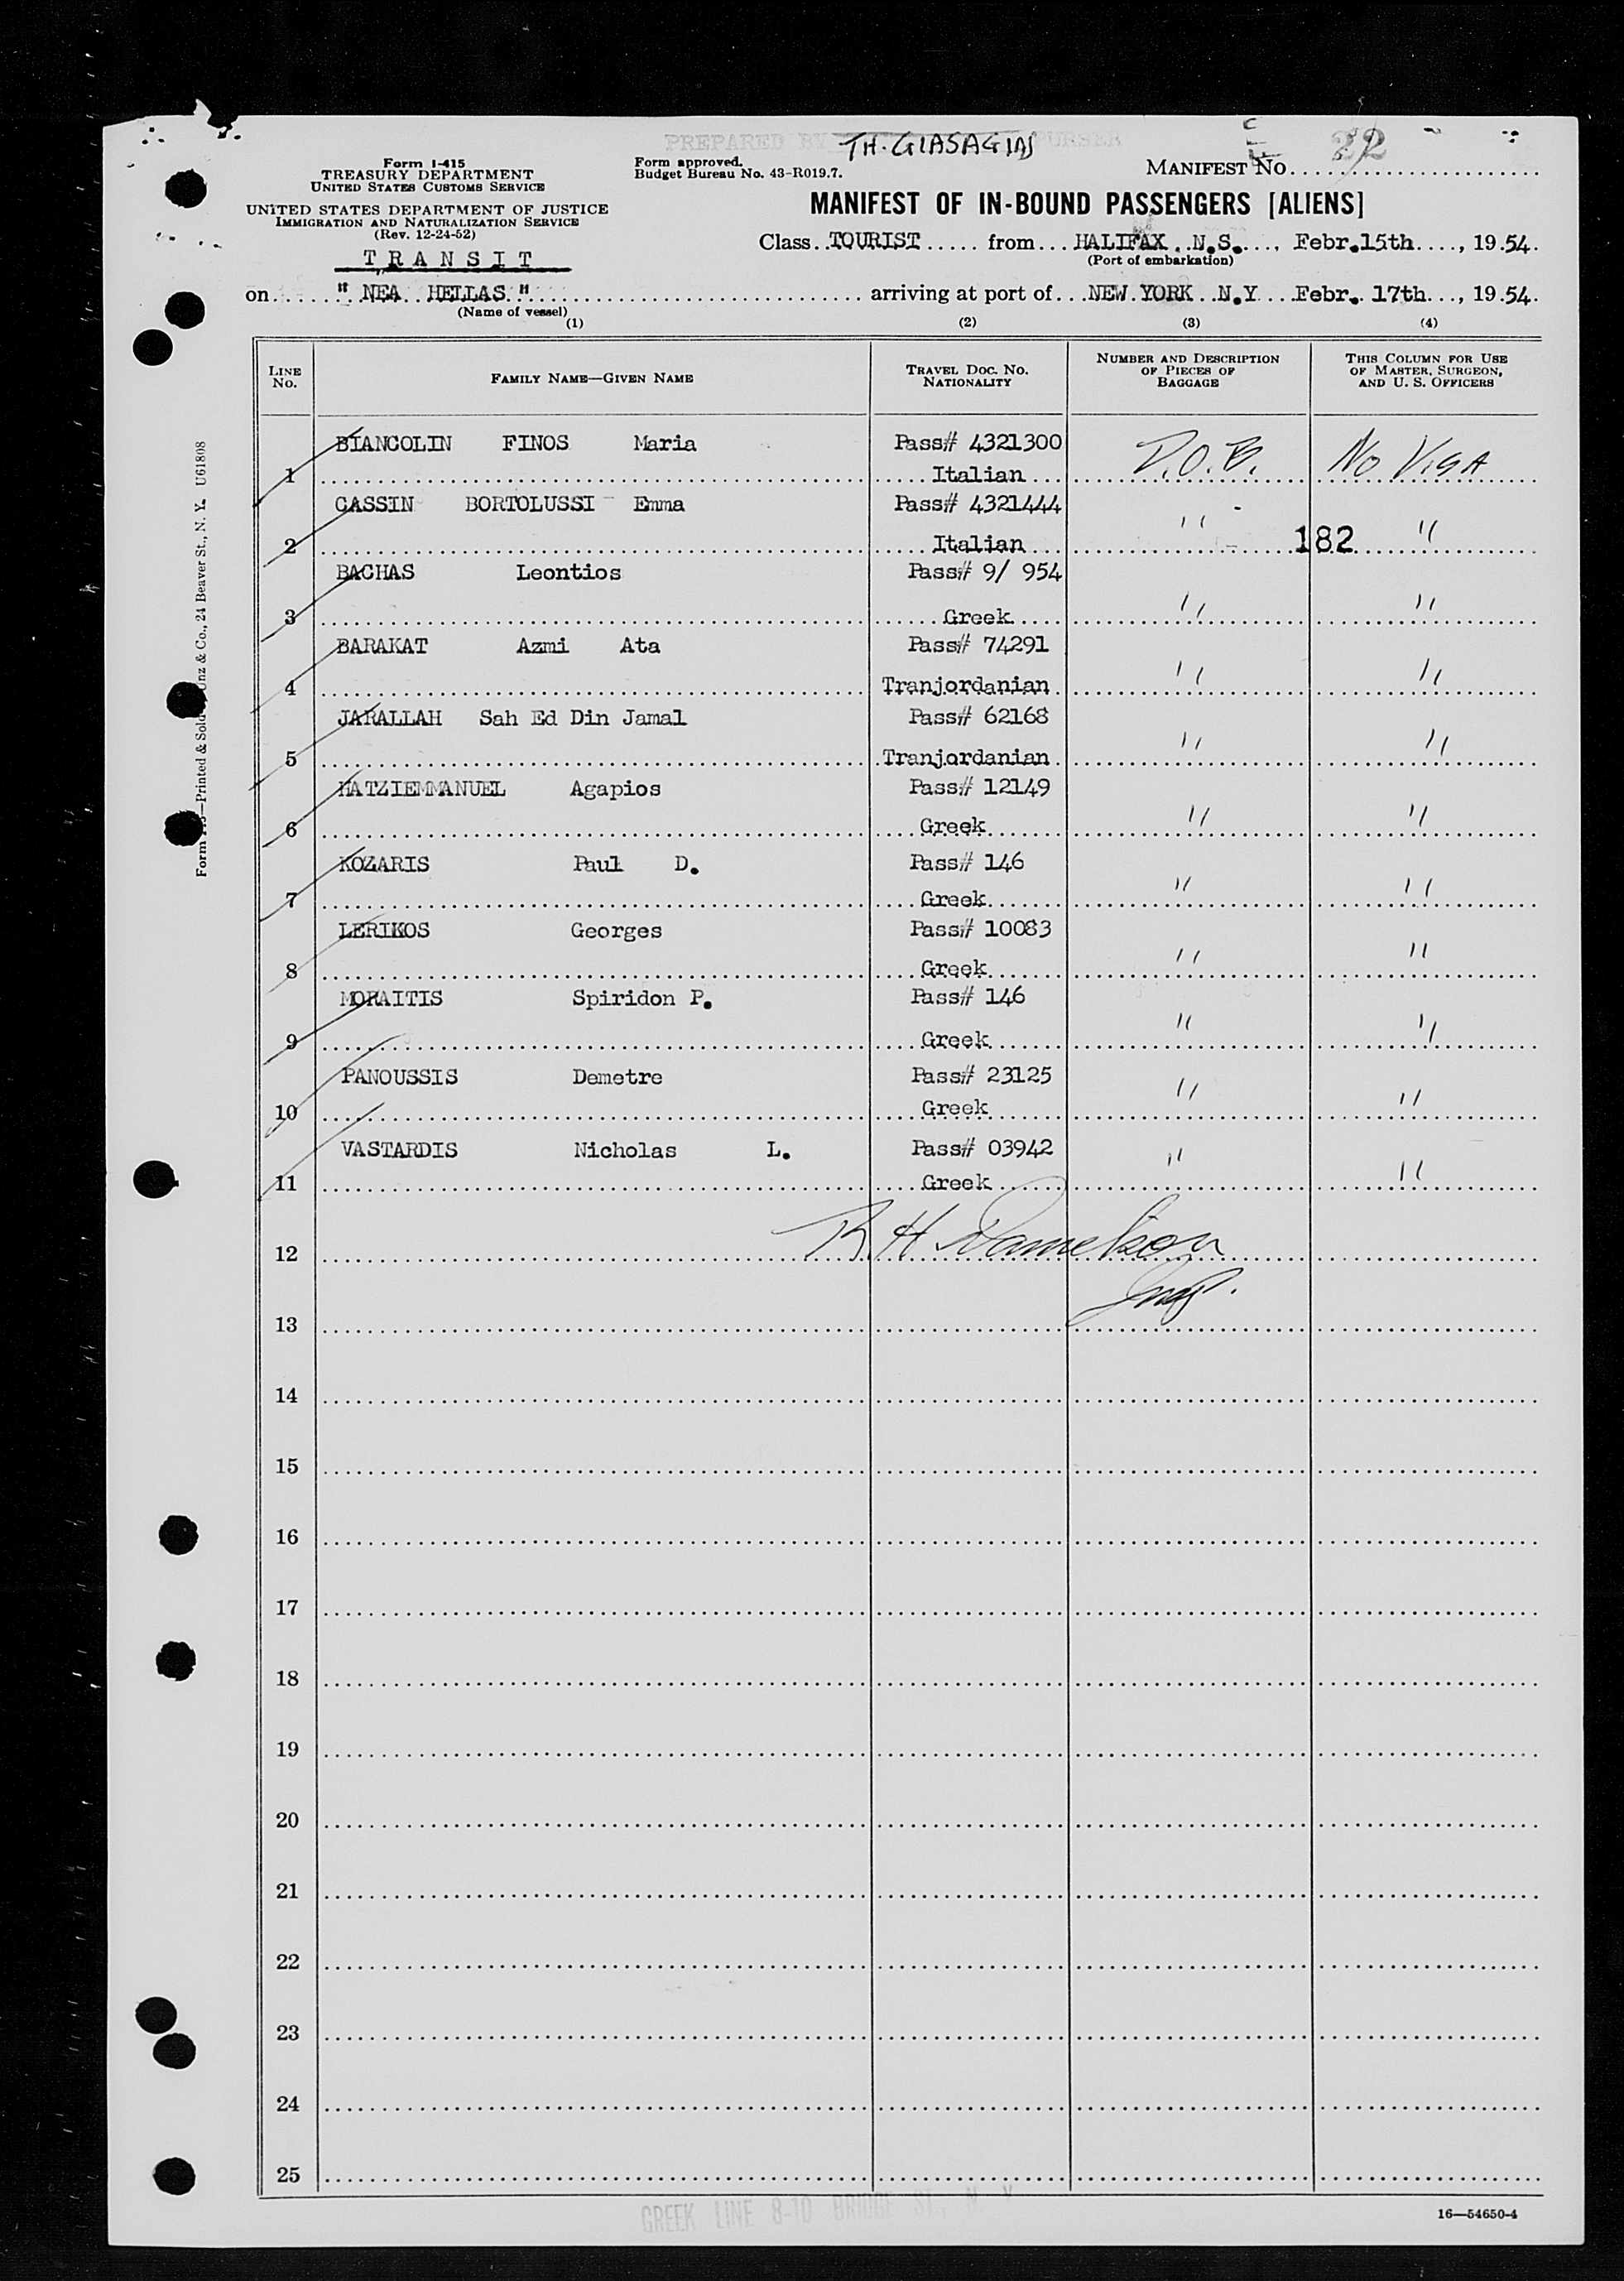 PREPARED BY TH. GIASAGIAS PURSER
Form I-415
TREASURY DEPARTMENT
UNITED STATES CUSTOMS SERVICE
UNITED STATES DEPARTMENT OF JUSTICE
IMMIGRATION AND NATURALIZATION SERVICE
(Rev. 12-24-52)
TRANSIT
Form approved.
Budget Bureau No. 43-R019.7.
MANIFEST NO. 22
MANIFEST OF IN-BOUND PASSENGERS [ALIENS]
Class TOURIST from HALIFAX N.S., Febr.15th, 1954.
(Port of embarkation)
on " NEA HELLAS " arriving at port of NEW YORK N.Y Febr. 17th, 1954.
(Name of vessel)
(1) (2) (3) (4)
LINE NO.
FAMILY NAME—GIVEN NAME
TRAVEL DOC. NO. NATIONALITY
NUMBER AND DESCRIPTION OF PIECES OF BAGGAGE
THIS COLUMN FOR USE OF MASTER, SURGEON, AND U. S. OFFICERS
BIANCOLIN FINOS Maria Pass# 4321300
1 Italian D.O.B. NO VISA
CASSIN BORTOLUSSI Emma Pass# 4321444
2 Italian " 182 "
BACHAS Leontios Pass# 9/ 954
3 Greek " "
BARAKAT Azmi Ata Pass# 74291
4 Tranjordanian " "
JARALLAH Sah Ed Din Jamal Pass# 62168
5 Tranjordanian " "
HATZIEMMANUEL Agapios Pass# 12149
6 Greek " "
KOZARIS Paul D. Pass# 146
7 Greek " "
LERIKOS Georges Pass# 10083
8 Greek " "
MORAITIS Spiridon P. Pass# 146
9 Greek " "
PANOUSSIS Demetre Pass# 23125
10 Greek " "
VASTARDIS Nicholas L. Pass# 03942
11 Greek " "
12 R H Danielson
13 Insp.
14
15
16
17
18
19
20
21
22
23
24
25
GREEK LINE 8-10 BRIDGE ST., N. Y.
16—54650-4
Printed & Sold Unz & Co., 24 Beaver St., N. Y. U61808